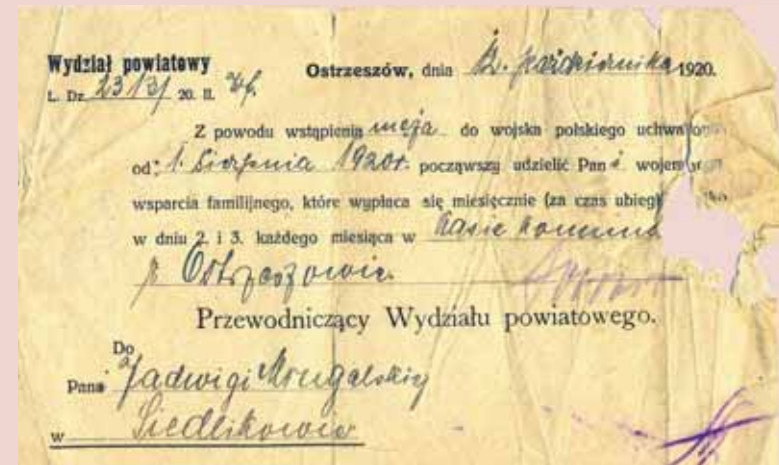 Wydział powiatowy
Ostrzeszów, dnia 12. października 1920.
L. Dz. 2313/ 20. II.
Z powodu wstąpienia męża do wojska polskiego uchwalono
od 1. Sierpnia 1920r. począwszy udzielić Pani wojennego
wsparcia familijnego, które wypłaca się miesięcznie (za czas ubiegł
w dniu 2. i 3. każdego miesiąca w Kasie Komuna
w Ostrzeszowie.
Przewodniczący Wydziału powiatowego.
Do
Pani Jadwigi
w Siedlikowie